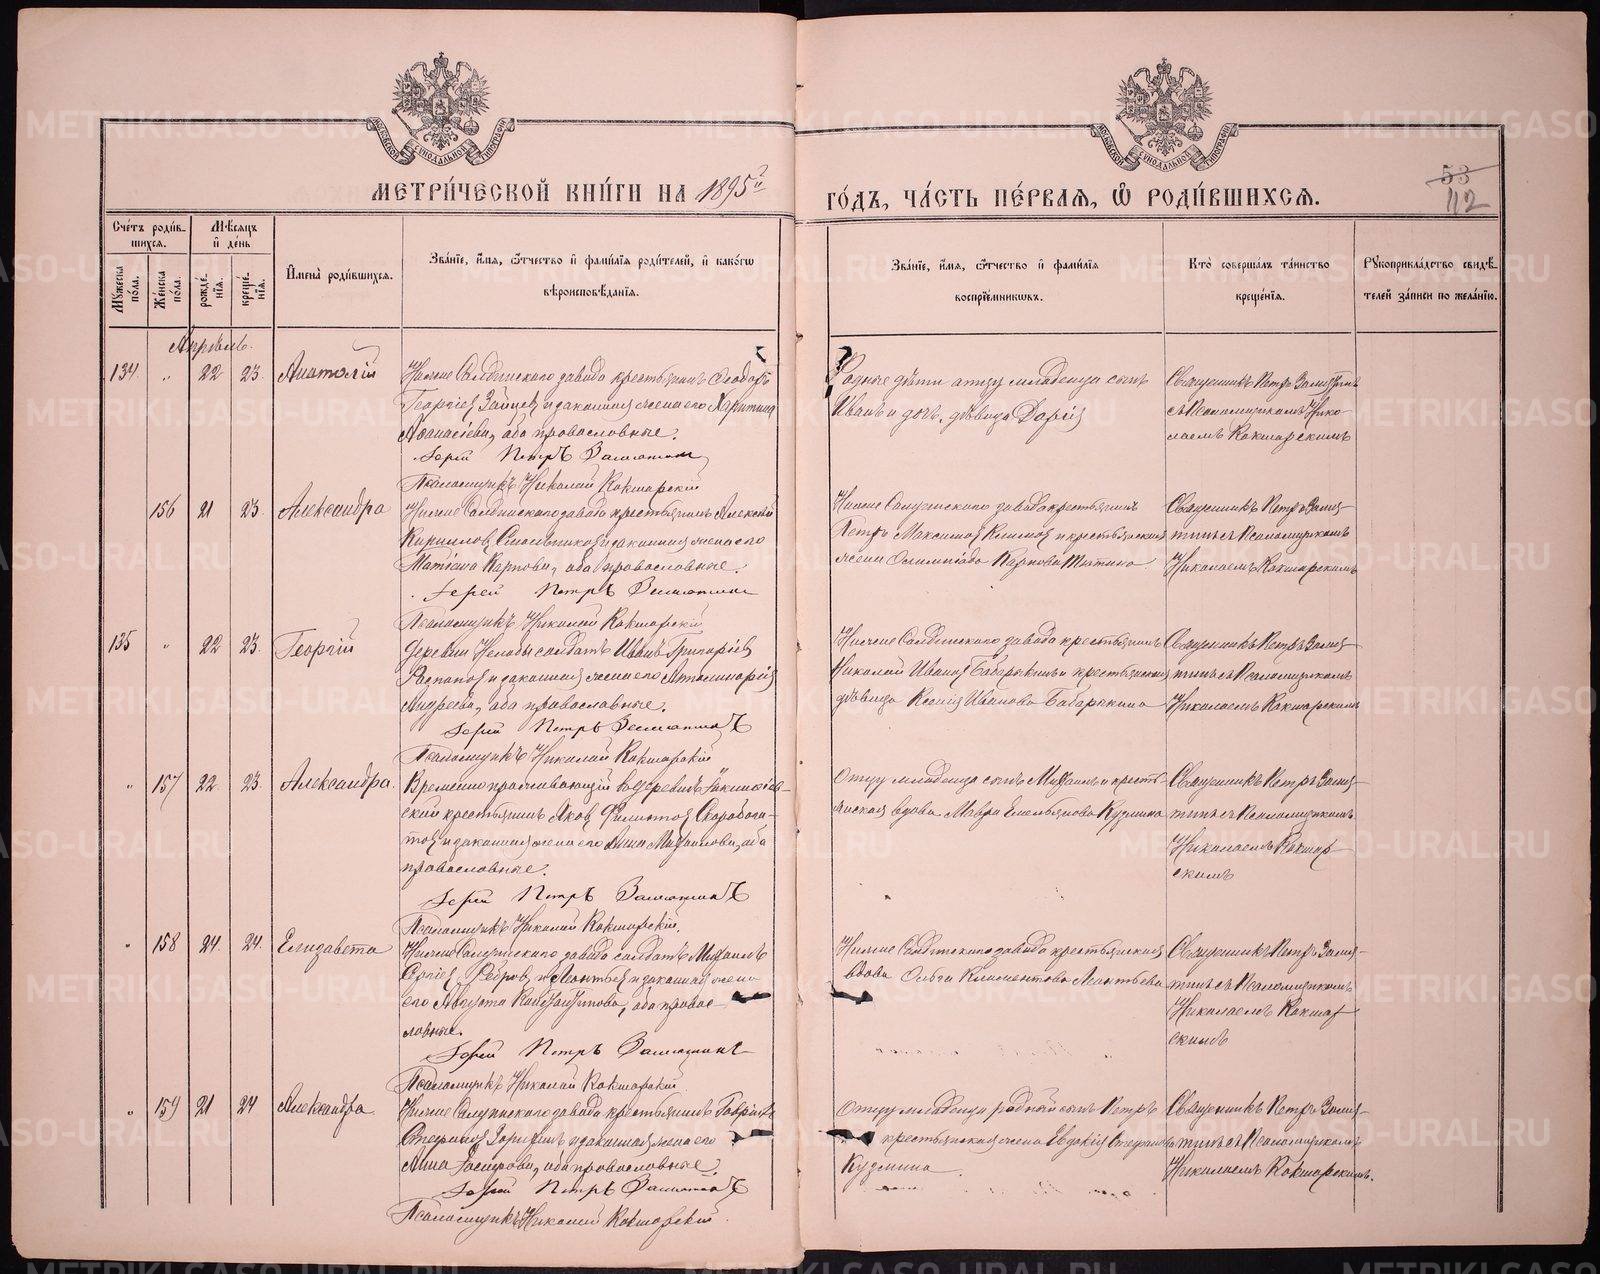 МЕТРИ́ЧЕСКОЙ КНИ́ГИ НА 1895й ГО́ДЪ, ЧА́СТЬ ПЕ́РВАЯ, Ѡ РОДИ́ВШИХСЯ.
53
112
Сче́тъ роди́в-
шихся.
Мѣ́сяцъ
и де́нь
Му́жеска по́ла.
Же́нска по́ла.
рожде́нїя.
креще́нїя.
И҆мена̀ роди́вшихся.
Зва́нїе, и҆́мя, ѻ҆́тчество и҆ фами́лїя роди́телей, и҆ како́гѡ
вѣроисповѣ́данїя.
Зва́нїе, и҆́мя, ѻ҆́тчество и҆ фами́лїя
воспрїе́мникѡвъ.
Кто̀ соверша́лъ та́инство
креще́нїя.
Рꙋкоприкла́дство свидѣ́-
телей за́писи по жела́нїю.
Апрѣль.
134 " 22 23. Анатолій
Нижне Салдинскаго завода крестьянинъ Ѳеодоръ
Георгіев Зайцев, и законная жена его Харитина
Аѳанасіева, оба православные.
Іерей Петръ Замятинъ
Псаломщикъ Николай Кокшарскій
Родные дѣти отцу младенца сынъ
Иванъ и дочь, дѣвица Дарія
Священникъ Петръ Замятинъ
съ Псаломщикомъ Нико-
лаемъ Кокшарскимъ
156 21 23. Александра
Нижне Салдинскаго завода крестьянинъ Алексѣй
Кириллов и законная жена его
Татіана Карпова, оба православные.
Іерей Петръ Замятинъ
Псаломщикъ Николай Кокшарскій
Нижне Салдинскаго завода крестьянинъ
Петръ Максимов Климов и крестьянская
жена Олимпіада Карпова
Священникъ Петръ Замя-
тинъ съ Псаломщикомъ
Николаемъ Кокшарскимъ
135 " 22 23. Георгій
Деревни Нелобы солдатъ Иванъ Григоріев
и законная жена его Аполлинарія
Андреева, оба православные.
Іерей Петръ Замятинъ
Псаломщикъ Николай Кокшарскій
Нижне Салдинскаго завода крестьянинъ
Николай Иванов Бабарыкинъ и крестьянская
дѣвица Ксенія Иванова Бабарыкина
Священникъ Петръ Замя-
тинъ съ Псаломщикомъ
Николаемъ Кокшарскимъ
" 157 22 23. Александра.
Временно проживающій въ деревнѣ
крестьянинъ Яков Филиппов Скоробога-
тов и законная жена его Анна Михаилова, оба
православные.
Іерей Петръ Замятинъ
Псаломщикъ Николай Кокшарскій.
Отцу младенца сынъ Михаилъ и кресть-
янская вдова Мавра Емельянова Кузмина
Священникъ Петръ Замя-
тинъ съ Псаломщикомъ
Николаемъ Кокшар-
скимъ
" 158 24. 24. Елизавета
Нижне Салдинскаго завода солдатъ Михаилъ
Сергіев и законная жена
его Августа оба право-
славные.
Іерей Петръ Замятинъ
Псаломщикъ Николай Кокшарскій.
Нижне Салдинскаго завода крестьянская
вдова Ольга Климентова Леонтьева
Священникъ Петръ Замя-
тинъ съ Псаломщикомъ
Николаемъ Кокшар-
скимъ
" 159 21 24 Александра
Нижне Салдинскаго завода крестьянинъ Гавріилъ
Стефанов Зоринъ и законная жена его
Анна оба православные.
Іерей Петръ Замятинъ
Псаломщикъ Николай Кокшарскій.
Отцу младенца родной сынъ Петръ
и крестьянская жена Евдокія Стефанова
Кузмина.
Священникъ Петръ Замя-
тинъ съ Псаломщикомъ
Николаемъ Кокшарскимъ.
METRIKI.GASO-URAL.RU